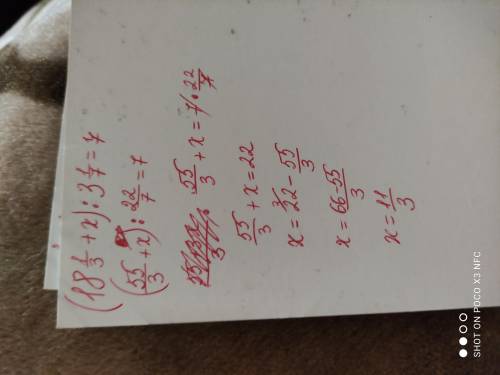 (18 1/3 + x) : 3 1/7 = 7
(55/3 + x) : 22/7 = 7
55/3 + x = 7 · 22/7
55/3 + x = 22
x = 22 - 55/3
x = 66-55/3
x = 11/3
SHOT ON POCO X3 NFC